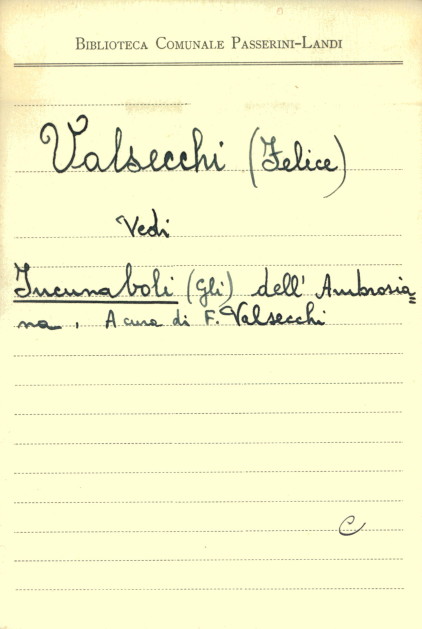 BIBLIOTECA COMUNALE PASSERINI-LANDI
Valsecchi (Felice)
Vedi
Incunaboli (Gli) dell' Ambrosia=
na. A cura di F. Valsecchi
C